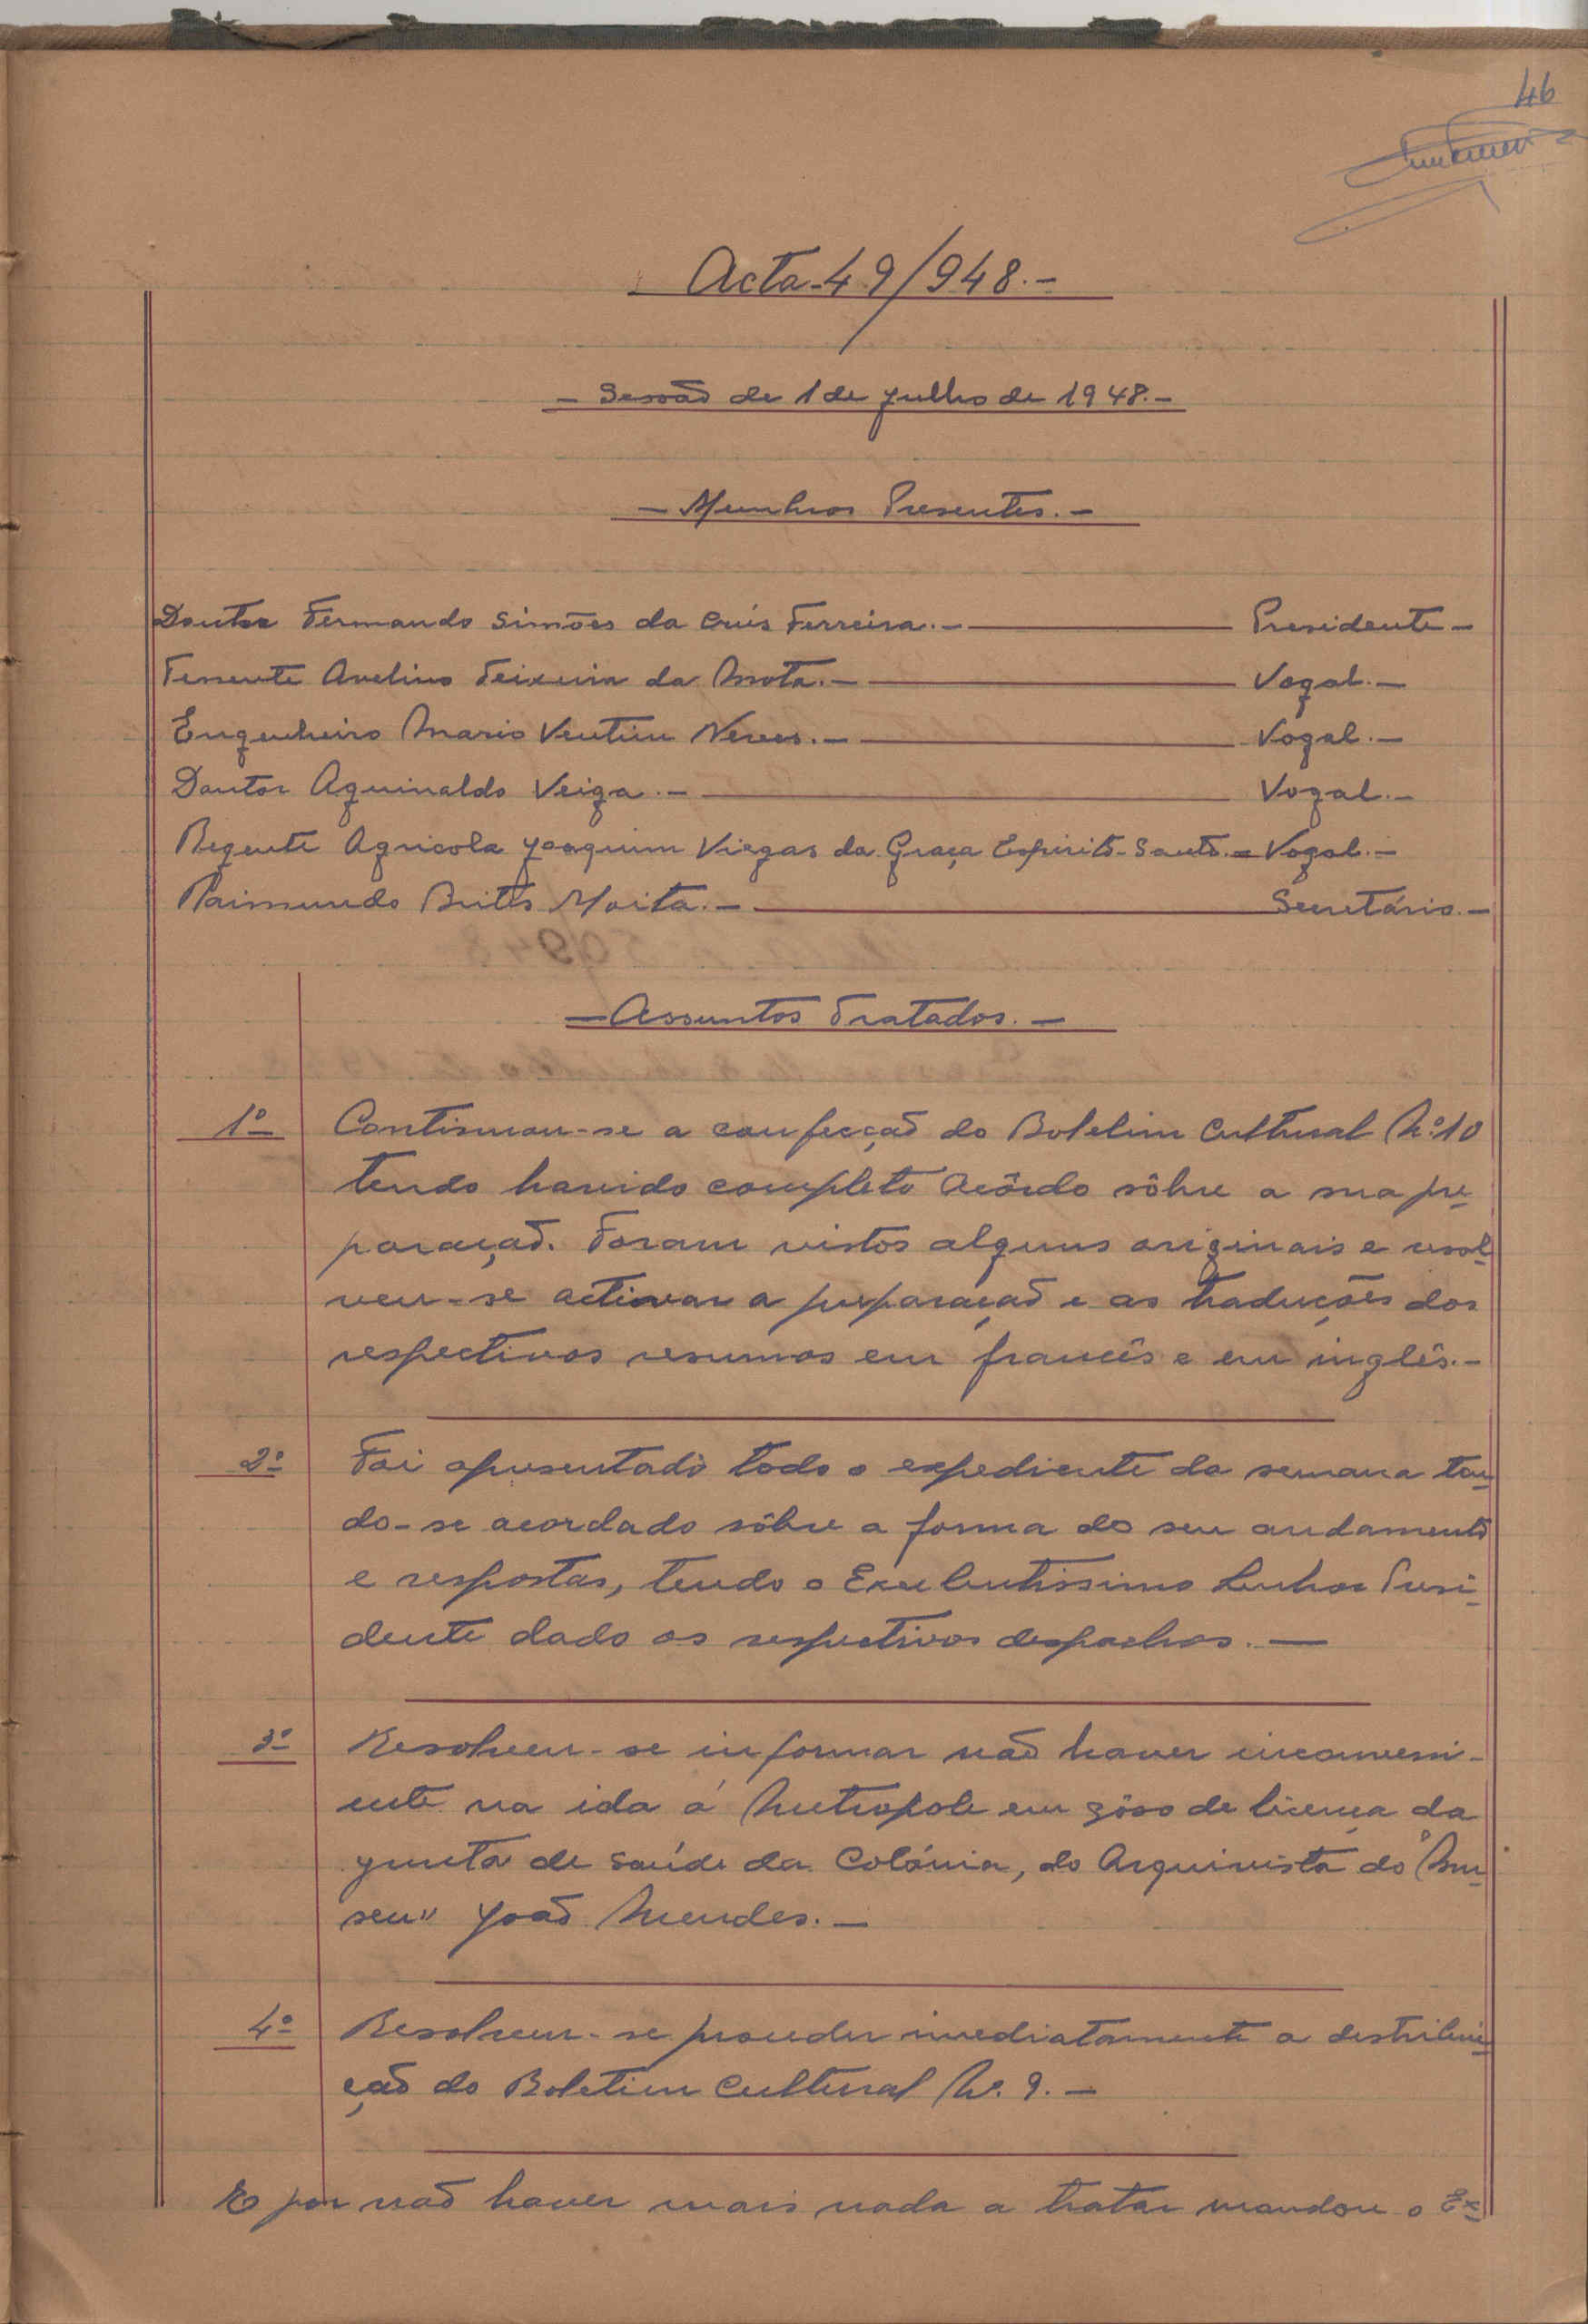 46
Acta-49/948.-
- Sessão de 1 de Julho de 1948.-
- Membros Presentes.-
Doutor Fernando Simões da Cruz Ferreira.- Presidente-
Tenente Avelino Teixeira da Mota.- Vogal.-
Engenheiro Mario Ventim Neves.- Vogal.-
Doutor Aguinaldo Veiga.- Vogal.-
Regente Agricola Joaquim Viegas da Graça Espirito-Santo.- Vogal.-
Raimundo Brites Moita.- Secretário.-
- Assuntos Tratados.-
1º Continuou-se a confecção do Boletim Cultural N.º 10
tendo havido completo acôrdo sôbre a sua pre-
paração. Foram vistos alguns originais e resol-
veu-se activar a preparação e as traduções dos
respectivos resumos em francês e em inglês.-
2º Foi apresentado todo o expediente da semana ten-
do-se acordado sôbre a forma do seu andamento
e respostas, tendo o Excelentissimo Senhor Presi-
dente dado os respectivos despachos.-
3º Resolveu-se informar não haver inconveni-
ente na ida á Metropole em gôso de licença da
Junta de Saúde da Colónia, do Arquivista do "Mu-
seu" João Mendes.-
4º Resolveu-se proceder imediatamente a destribui-
ção do Boletim Cultural N.º 9.-
E por não haver mais nada a tratar mandou o Ex-